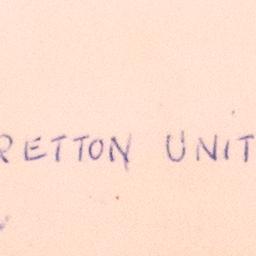 RETTON UNIT